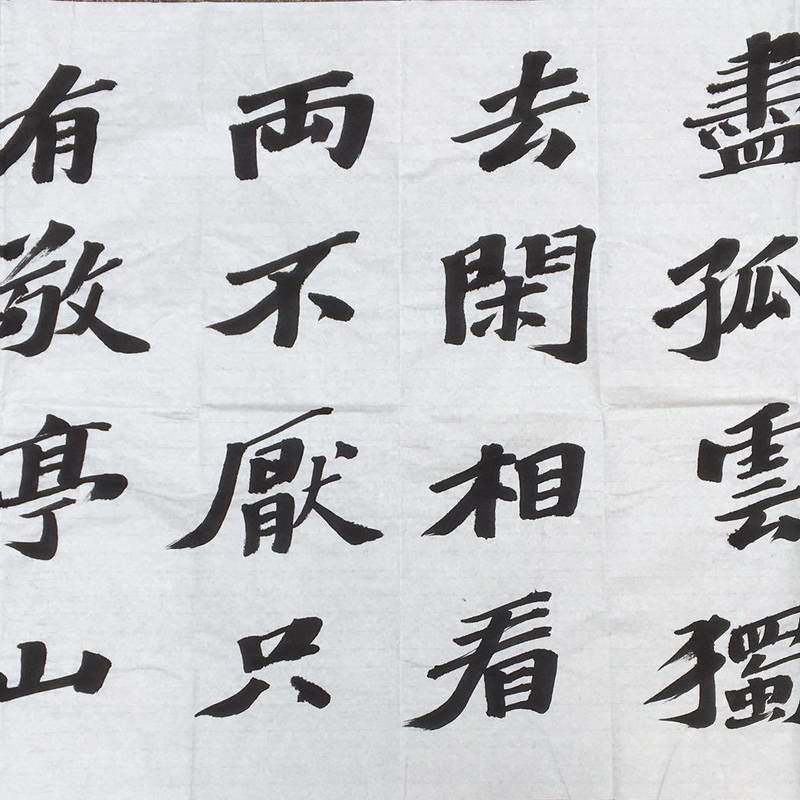 盡孤雲獨
去閑相看
両不厭只
有敬亭山